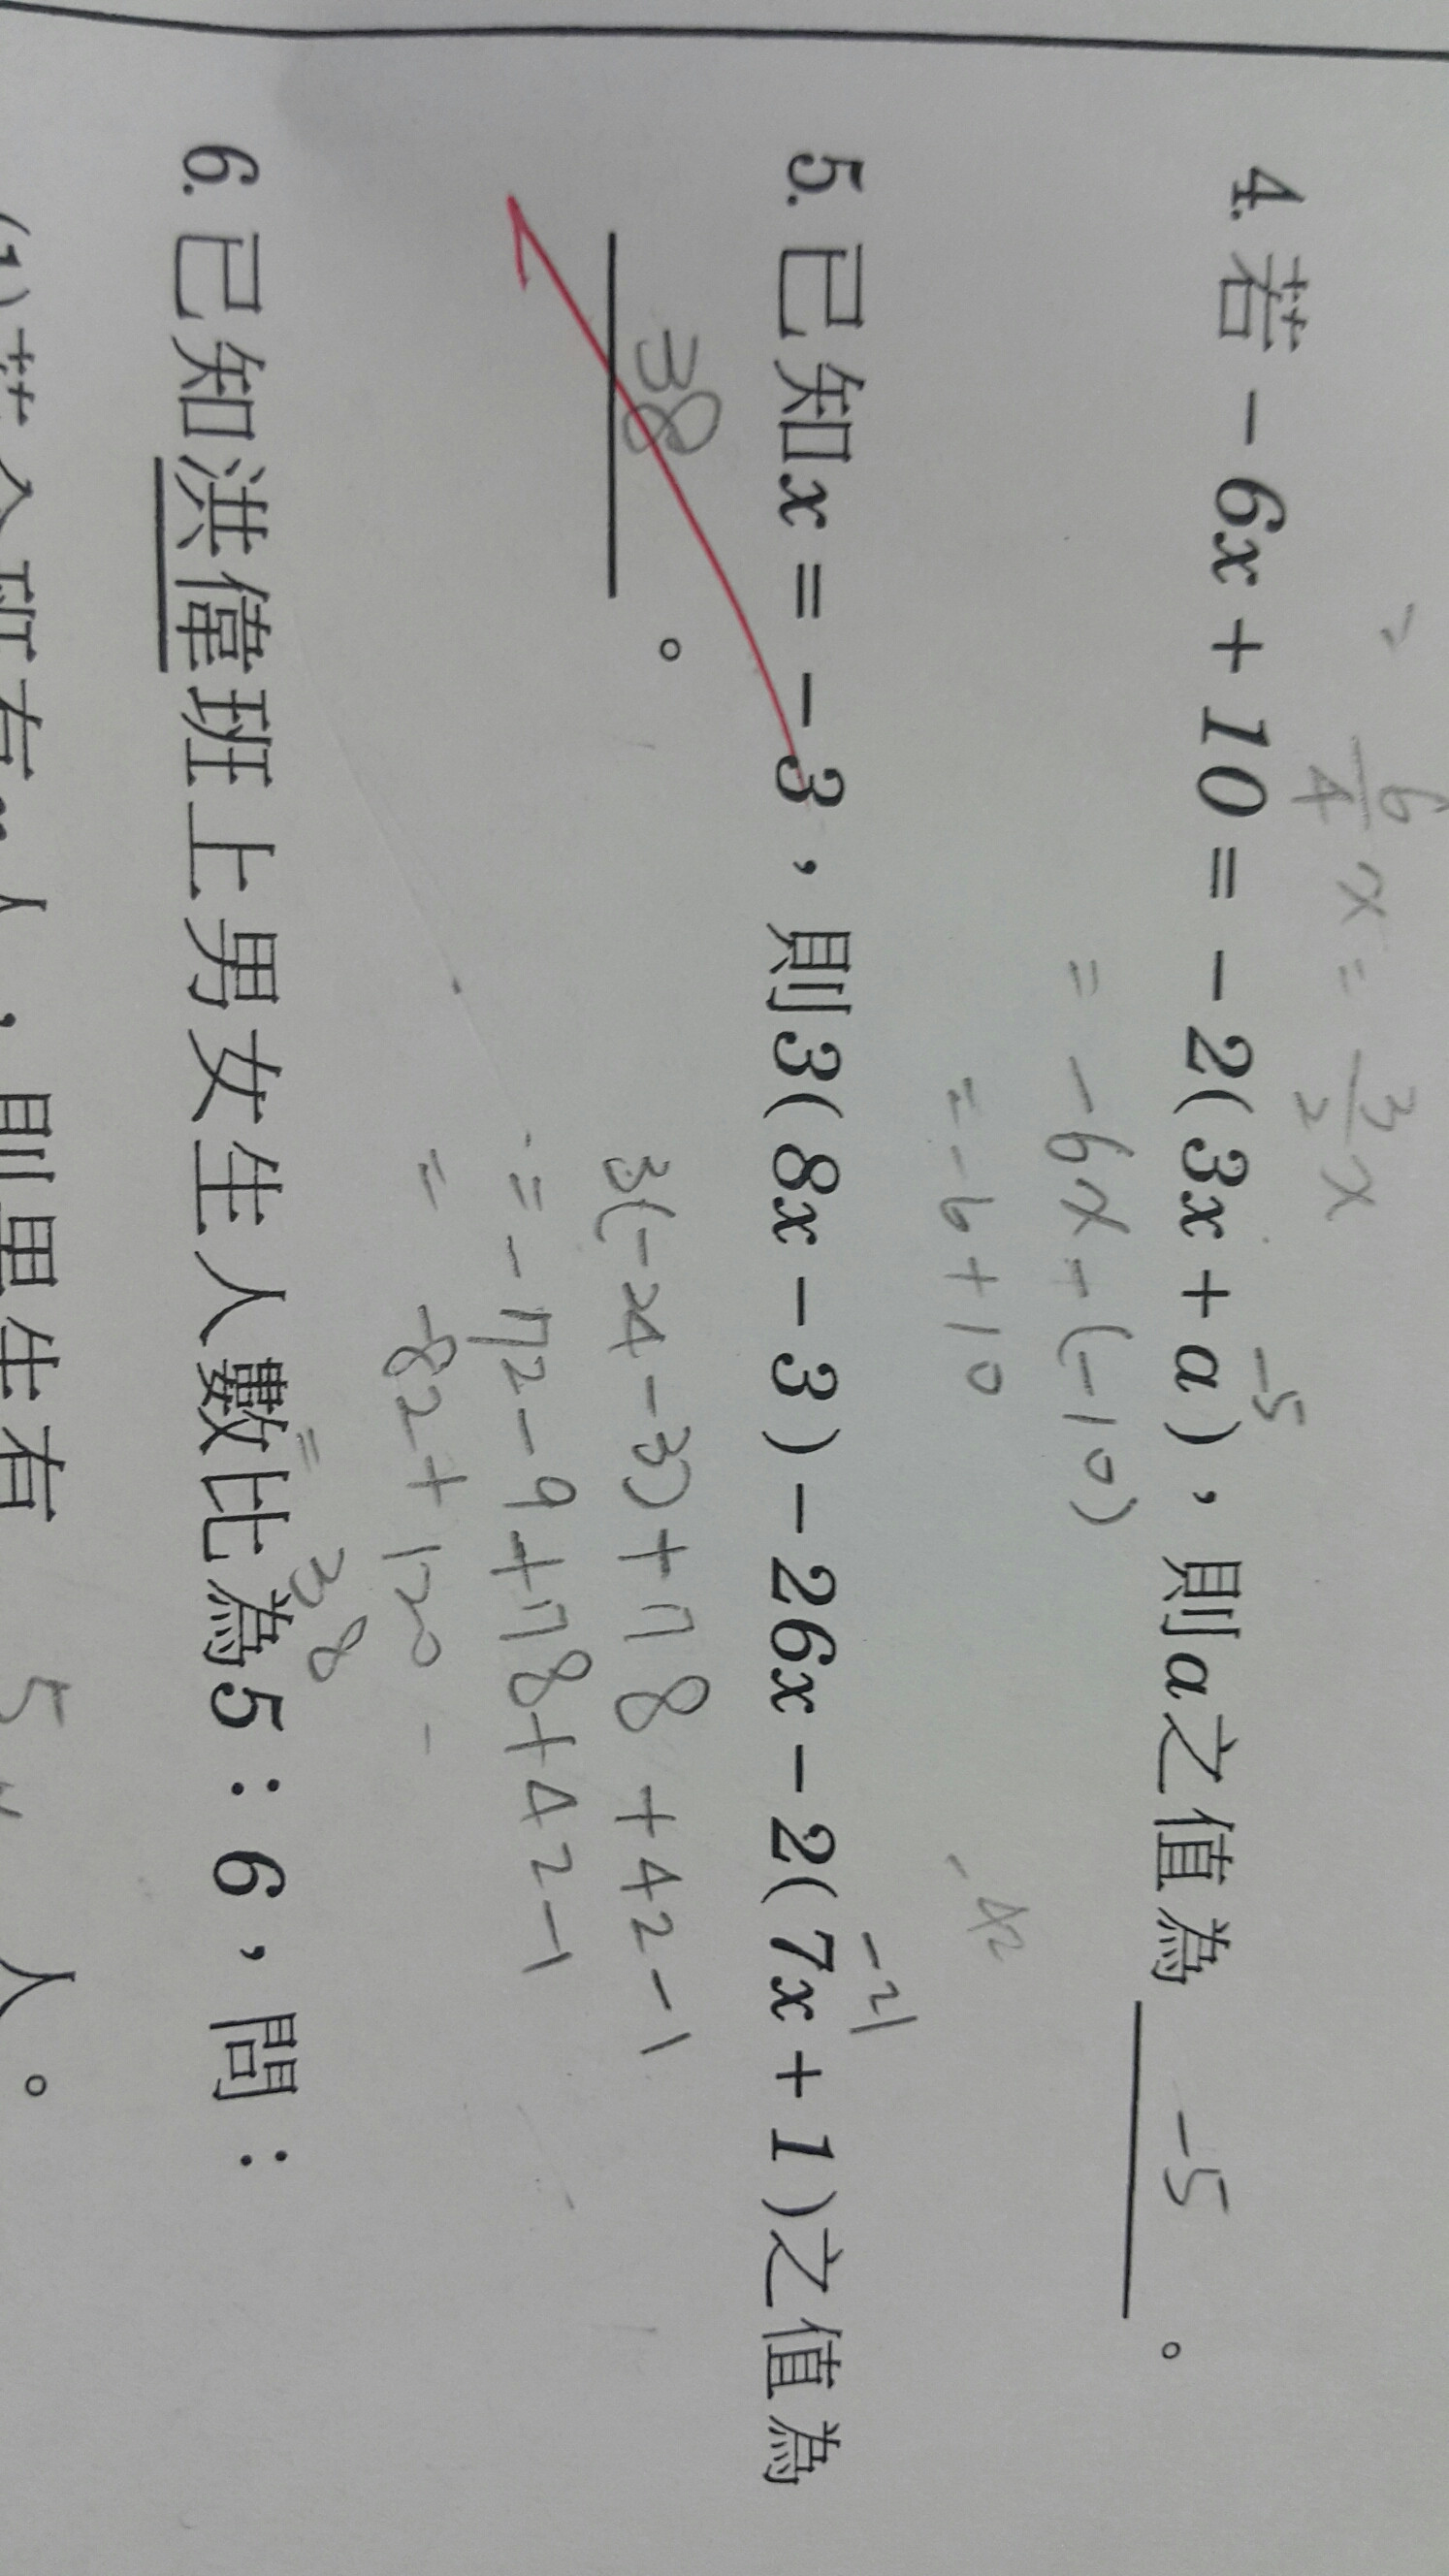 6/4 x = 3/2 x
-5
4. 若 - 6x + 10 = - 2( 3x + a )，則a之值為 -5 。
= - 6x + (-10)
= - 6 + 10
-42
-21
5. 已知x = - 3，則3( 8x - 3 ) - 26x - 2( 7x + 1 )之值為
38 。
3(-24-3)+78+42-1
= -72-9+78+42-1
= -82+120
= 38
6. 已知洪偉班上男女生人數比為5：6，問：
，則男生有 5 人。